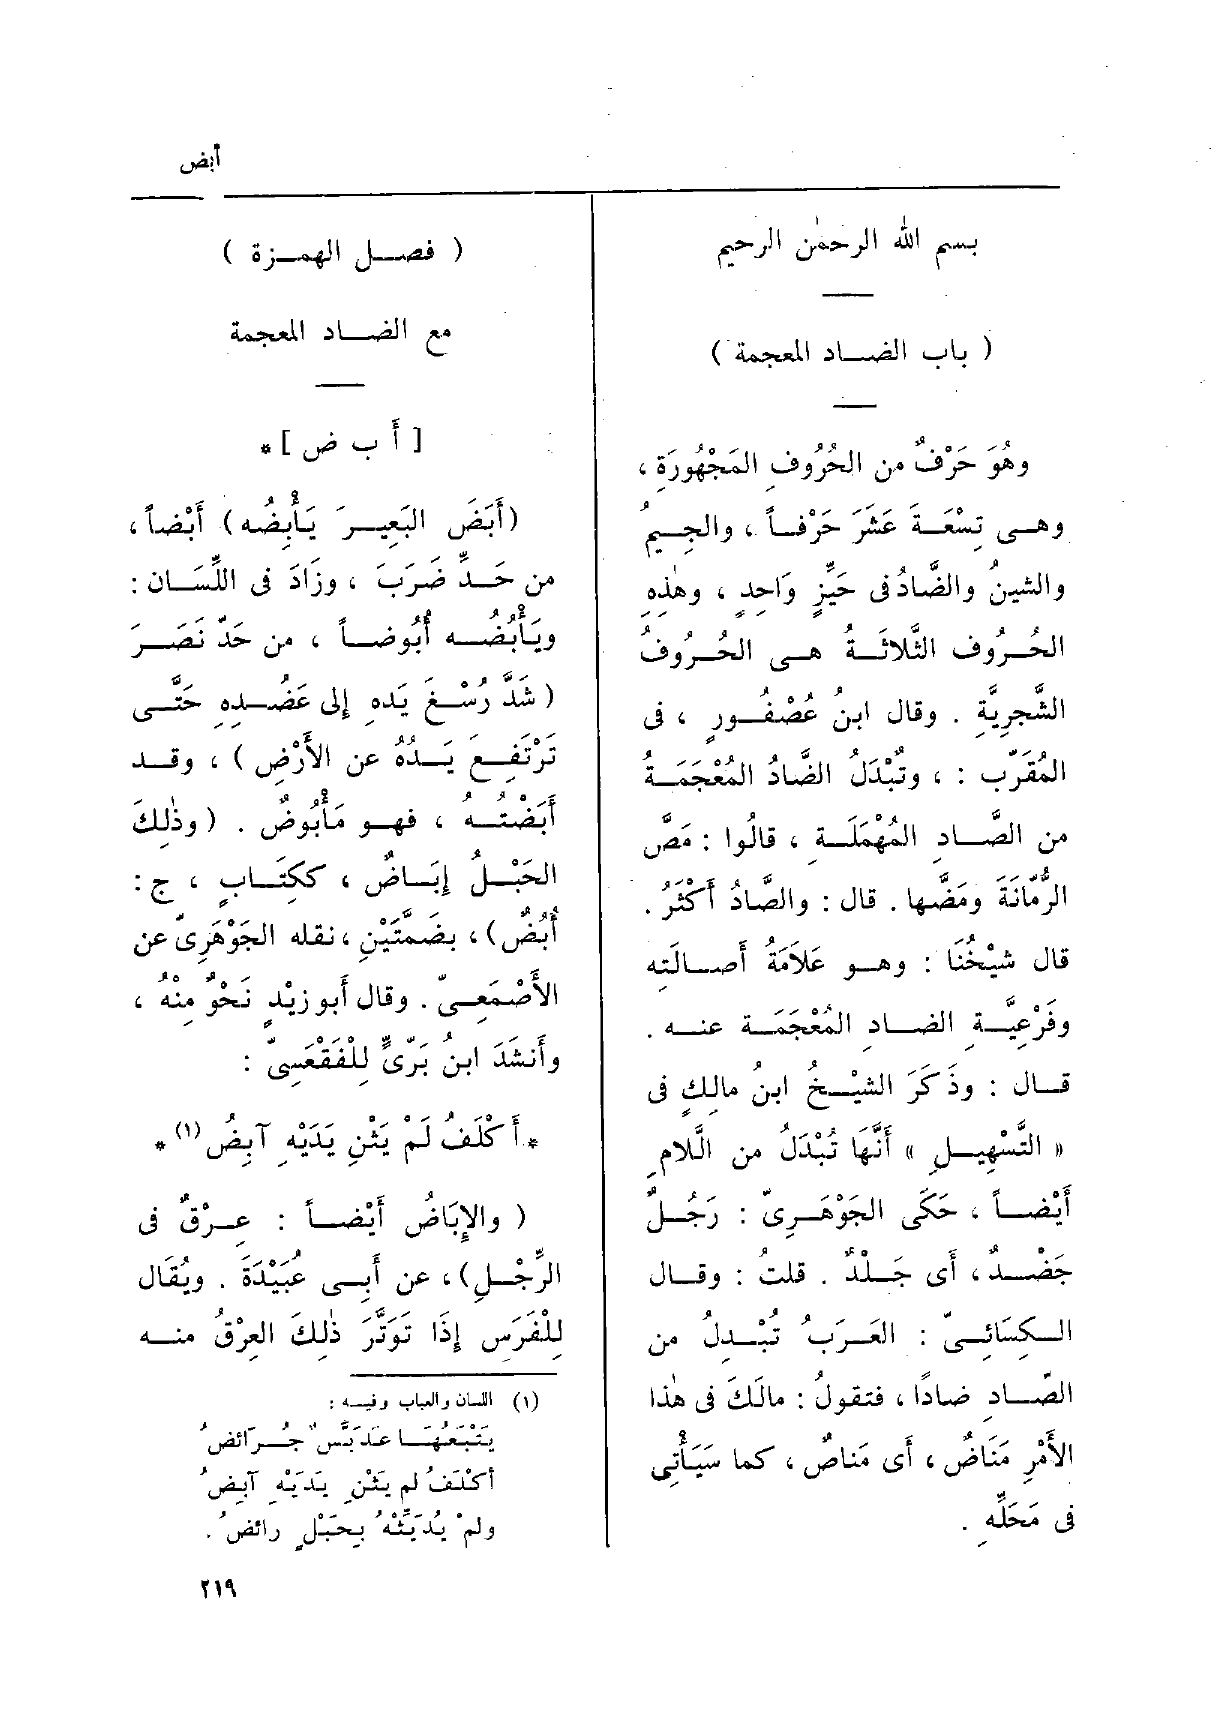 أبض
بسم الله الرحمٰن الرحيم
( باب الضاد المعجمة )
وهُوَ حَرْفٌ من الحُرُوفِ المَجْهُورَةِ ،
وهى تِسْعَةَ عَشَرَ حَرْفاً ، والجِيمُ
والشينُ والضَّادُ فى حَيِّزٍ وَاحِدٍ ، وهٰذِهِ
الحُرُوف الثَّلاثَةُ هى الحُرُوفُ
الشَّجْرِيَّة . وقال ابنُ عُصْفُورٍ ، فى
المُقَرَّب : ، وتُبْدَلُ الضَّادُ المُعْجَمَةُ
من الصَّادِ المُهْمَلَةِ ، قالُوا : مَصَّ
الرُّمّانَةَ ومَضَّها . قال : والصَّادُ أَكْثَرُ .
قال شَيْخُنَا : وهو عَلاَمَةُ أَصالَتِه
وفَرْعِيَّةِ الضادِ المُعْجَمَةِ عنه .
قال : وذَكَرَ الشَّيْخُ ابنُ مالِكٍ فى
« التَّسْهِيلِ » أَنَّهَا تُبْدَلُ من الَّلام
أَيْضاً ، حَكَى الجَوْهَرِىّ : رَجُلٌ
جَضْدٌ ، أَى جَلْدٌ . قلتُ : وقال
الكِسَائىّ : العَرَبُ تُبْدِلُ من
الصّادِ ضادًا ، فتقولُ : مالَكَ فى هٰذا
الأَمْرِ مَنَاضٌ ، أَى مَناصٌ ، كما سَيَأْتِى
فى مَحَلِّهِ .
( فصل الهمزة )
مع الضاد المعجمة
[ أ ب ض ] *
(أَبَضَ البَعِيرَ يَأْبِضُه) أَبْضاً ،
من حَدِّ ضَرَبَ ، وزَادَ فى اللِّسَان :
ويَأْبُضُه أُبُوضاً ، من حَدِّ نَصَرَ
( شَدَّ رُسْغَ يَدِهِ إِلى عَضُدِهِ حَتَّى
تَرْتَفِعَ يَدُهُ عن الأَرْضِ ) ، وقد
أَبَضْتُه ، فهو مَأْبُوضٌ . (وذٰلِكَ
الحَبْلُ إِبَاضٌ ، ككِتَابٍ ، ج :
أُبُضٌ) ، بضَمَّتَيْنِ ، نقله الجَوْهَرِىّ عن
الأَصْمَعِىّ . وقال أَبو زيْدٍ نَحْوٌ مِنْهُ ،
وأَنشَدَ ابنُ بَرِّىٍّ لِلْفَقْعَسِىّ :
* أَكْلَفُ لَمْ يَثْنِ يَدَيْهِ آبِضُ (١) *
( والإِبَاضُ أَيْضاً : عِرْقٌ فى
الرِّجْلِ) ، عن أَبى عُبَيْدَةَ . ويُقَال
لِلْفَرَسِ إِذَا تَوَتَّرَ ذٰلِكَ العِرْقُ منه
(١) اللسان والعباب وفيه :
يَتْبَعُهَا عَدَبَّسٌ جُرَائضُ
أكْلَفُ لم يَثْنِ يَدَيْهِ آبضُ
ولمْ يُدَيِّثْهُ بِحَبْلٍ رائضُ .
٢١٩